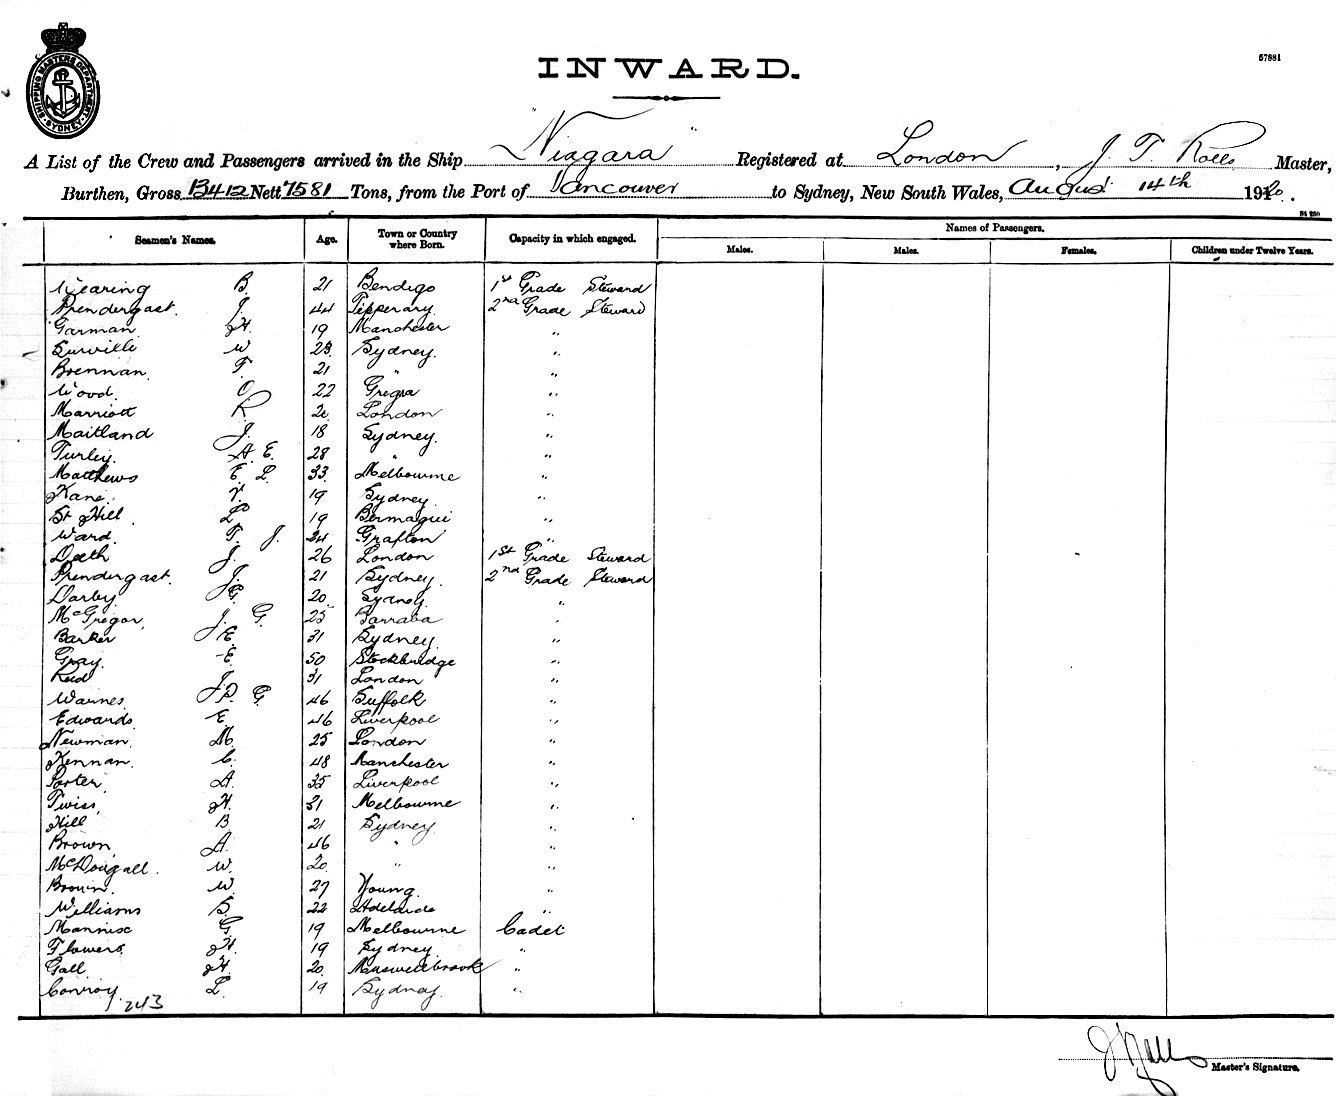 SHIPPING MASTERS DEPARTMENT SYDNEY
INWARD.
57881
A List of the Crew and Passengers arrived in the Ship "Niagara" Registered at London, J. T. Rolls Master,
Burthen, Gross 13412 Nett 7581 Tons, from the Port of Vancouver to Sydney, New South Wales, August 14th 1920.
Seamen's Names. Age. Town or Country where Born. Capacity in which engaged. Names of Passengers.
Males. Males. Females. Children under Twelve Years.
Wearing B. 21 Bendigo 1st Grade Steward
Prendergast. J. 44 Tipperary. 2nd Grade Steward
Garman H. 19 Manchester "
Surville W 23. Sydney. "
Brennan. T. 21 " "
Wood. C. 22 "
Marriott R. London "
Maitland J. 18 Sydney. "
Turley. A. E. 28 " "
Matthews E. L. 33. Melbourne "
Kane. 19 Sydney. "
St Hill L 19 Bermagui "
Ward. T. J. 24 Grafton "
Death J. 26 London 1st Grade Steward
Prendergast. J. 21 Sydney 2nd Grade Steward
Darby. G. 20 Sydney "
McGregor. J. G. 25 Barraba "
Barker E. 31 Sydney "
Gray. E. 50 Stockbridge "
Reid J. 31 London "
Warnes P. G. 46 Suffolk "
Edwards. E. 46 Liverpool "
Newman. M. 25 London "
Kennan. C. 48 Manchester "
Porter. A. 35 Liverpool "
Twiss. H. 31 Melbourne "
Hill B 21 Sydney "
Brown A. 46 " "
McDougall. W. 20. " "
Brown. W. 27 Young. "
Williams B. 22 Adelaide "
Mannix G 19 Melbourne Cadet
Flowers. H. 19 Sydney "
Gall H. 20. Muswellbrook "
Conroy. L. 19 Sydney. "
243
Master's Signature.